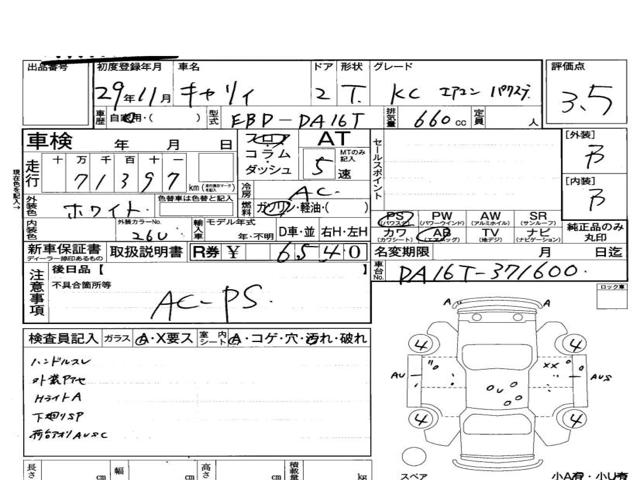 出品番号 初度登録年月 車名 ドア 形状 グレード 評価点
29年11月 キャリイ 2 T. KC エアコン パワステ 3.5
車歴 自家用・( ) 型式 EBD-DA16T 排気量 660cc 定員 人
車検 年 月 日 フロア AT セールスポイント [外装] B
コラム・ダッシュ 5速 MTのみ記入
走行 十万千百十一 71397 km
冷房 AC [内装] B
外装色 ホワイト 色替車は色替と記入 燃料 ガソリン・軽油・( )
PS (パワステ) PW (パワーウインド) AW (アルミホイル) SR (サンルーフ)
内装色 外装カラーNo. 26U 輸入車 モデル年式 年・不明 D車・並 右H・左H
カワ (カワシート) AB (エアバッグ) TV (地デジ) ナビ (ナビゲーション) 純正品のみ丸印
新車保証書 ディーラー捺印あるもの 取扱説明書 R券 ¥ 6540 名変期限 月 日迄
注意事項 後日品【 】 車台No. DA16T-371600.
不具合箇所等 ロック車
AC-PS.
検査員記入 ガラス A・X要ス 室内シート A・コゲ・穴・汚れ・破れ
ハンドルスレ
外装アクセ
HライトA
下廻りSP
荷台アオリAUSC
4 4
AU XX AUS
4 4
長さ cm 幅 cm 高さ cm 積載量 kg スペア 小A有・小U有
現在色を記入